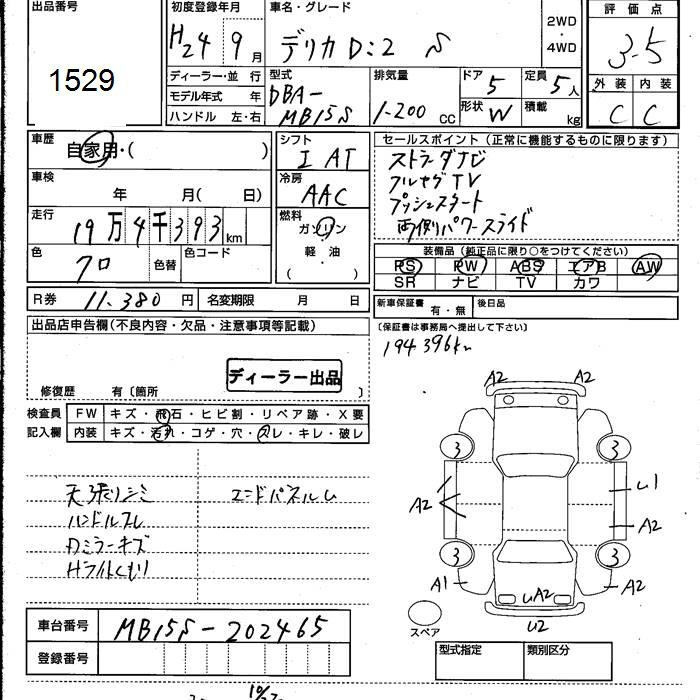 出品番号
1529
初度登録年月
H24 9月
ディーラー・並 行
モデル年式 年
ハンドル 左・右
車名・グレード
デリカD:2 S
2WD
・
4WD
型式
DBA-
MB15S
排気量
1-200 cc
ドア 5
形状 W
定員 5人
積載 kg
評価点
3.5
外装 内装
C C
車歴
自家用・( )
車検
年 月( 日)
走行
19万4千393km
色
クロ
色替
色コード
シフト
I AT
冷房
AAC
燃料
ガソリン
軽 油
( )
セールスポイント(正常に機能するものに限ります)
ストラーダナビ
フルセグTV
プッシュスタート
両側パワースライド
装備品(純正品に限り○をつけてください)
PS PW ABS エアB AW
SR ナビ TV カワ
R券 11.380 円 名変期限 月 日
新車保証書 有・無 後日品
(保証書は事務局へ提出して下さい)
194396km
出品店申告欄(不良内容・欠品・注意事項等記載)
ディーラー出品
修復歴 有〔箇所 〕
検査員 FW キズ・飛石・ヒビ割・リペア跡・X要
記入欄 内装 キズ・汚れ・コゲ・穴・スレ・キレ・破レ
天張りシミ
ハンドルスレ
Dミラーキズ
Hライトくもり
エンドパネルU
A2 A2
3 3
A2
U1
A2
3 3
A1
UA2
A2
U2
スペア
車台番号 MB15S-202465
登録番号
型式指定 類別区分